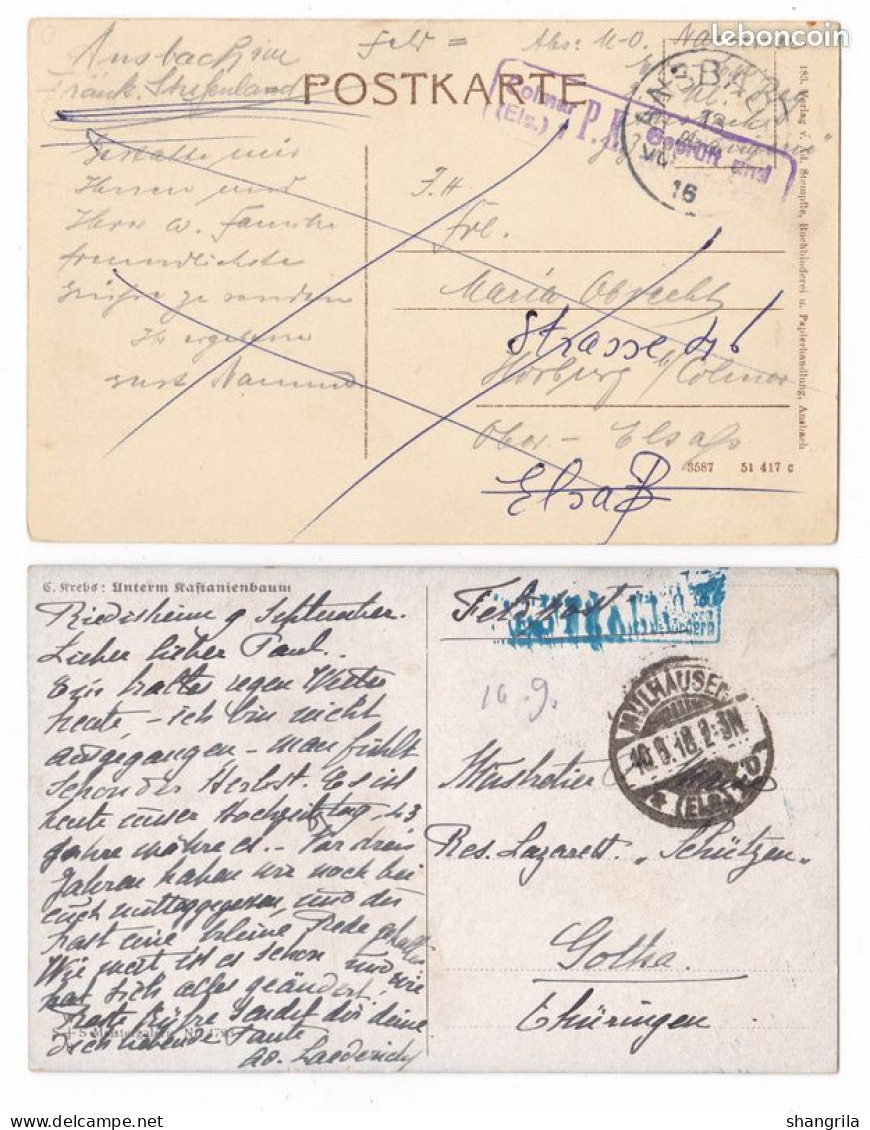 leboncoin
Ansbach im
Fränk.
Feld =
Abs: U-O.
POSTKARTE
Colmar
(Els.)
P.K.
Geprüft und
ANSBACH
13
VII
16
Gestatte mir
Ihnen und
Ihrer w. Familie
freundlichste
Grüsse zu senden
Ihr ergebener
F.H.
Frl.
Maria Obrecht
Strasse 46
Horburg b/Colmar
Ober-Elsaß
Elsaß
3587 51 417 c
183. Verlag v. Xd. Stempfle, Buchbinderei u. Papierhandlung, Ansbach
C. Krebs: Unterm Kastanienbaum
Riedisheim 9 September.
Lieber lieber Paul.
Ein kalter regen Wetter
heute - ich bin nicht
ausgegangen - man fühlt
schon der Herbst. Es ist
heute unser Hochzeitstag, 43
Jahre wäre es. - Vor drei
Jahren haben wir noch bei
euch mittaggegessen, und du
hast eine kleine Rede gehalten
Wie weit ist es schon und wie
hat sich alles geändert!
Grüße sendet dir deine
Dich liebende Tante
Ad. Laederich
Feldpost
10.9.
MÜLHAUSEN
10.9.18.2-3N
* (ELS.)
Musketier
Res. Lazarett. „Schützen"
Gotha.
Thüringen
shangrila